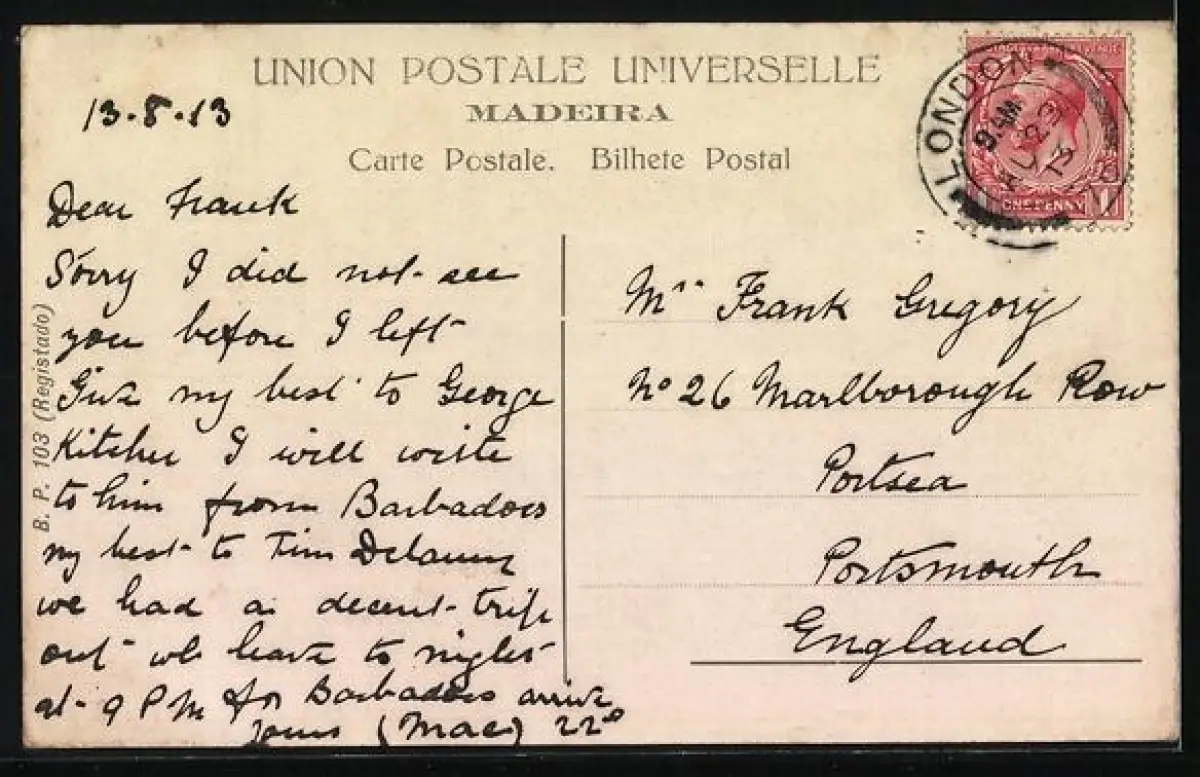 UNION POSTALE UNIVERSELLE
MADEIRA
Carte Postale. Bilhete Postal
13-8-13
LONDON
9. AM
AU 23
13
ONE PENNY
1
Dear Frank
Sorry I did not see
you before I left
Give my best to George
Kitcher I will write
to him from Barbadoes
my best to Tim Delaney
we had a decent trip
out we leave to night
at 9 PM for Barbadoes arrive
yours (Mac) 22nd
Mr Frank Gregory
No 26 Marlborough Row
Portsea
Portsmouth
England
B. P. 103 (Registado)